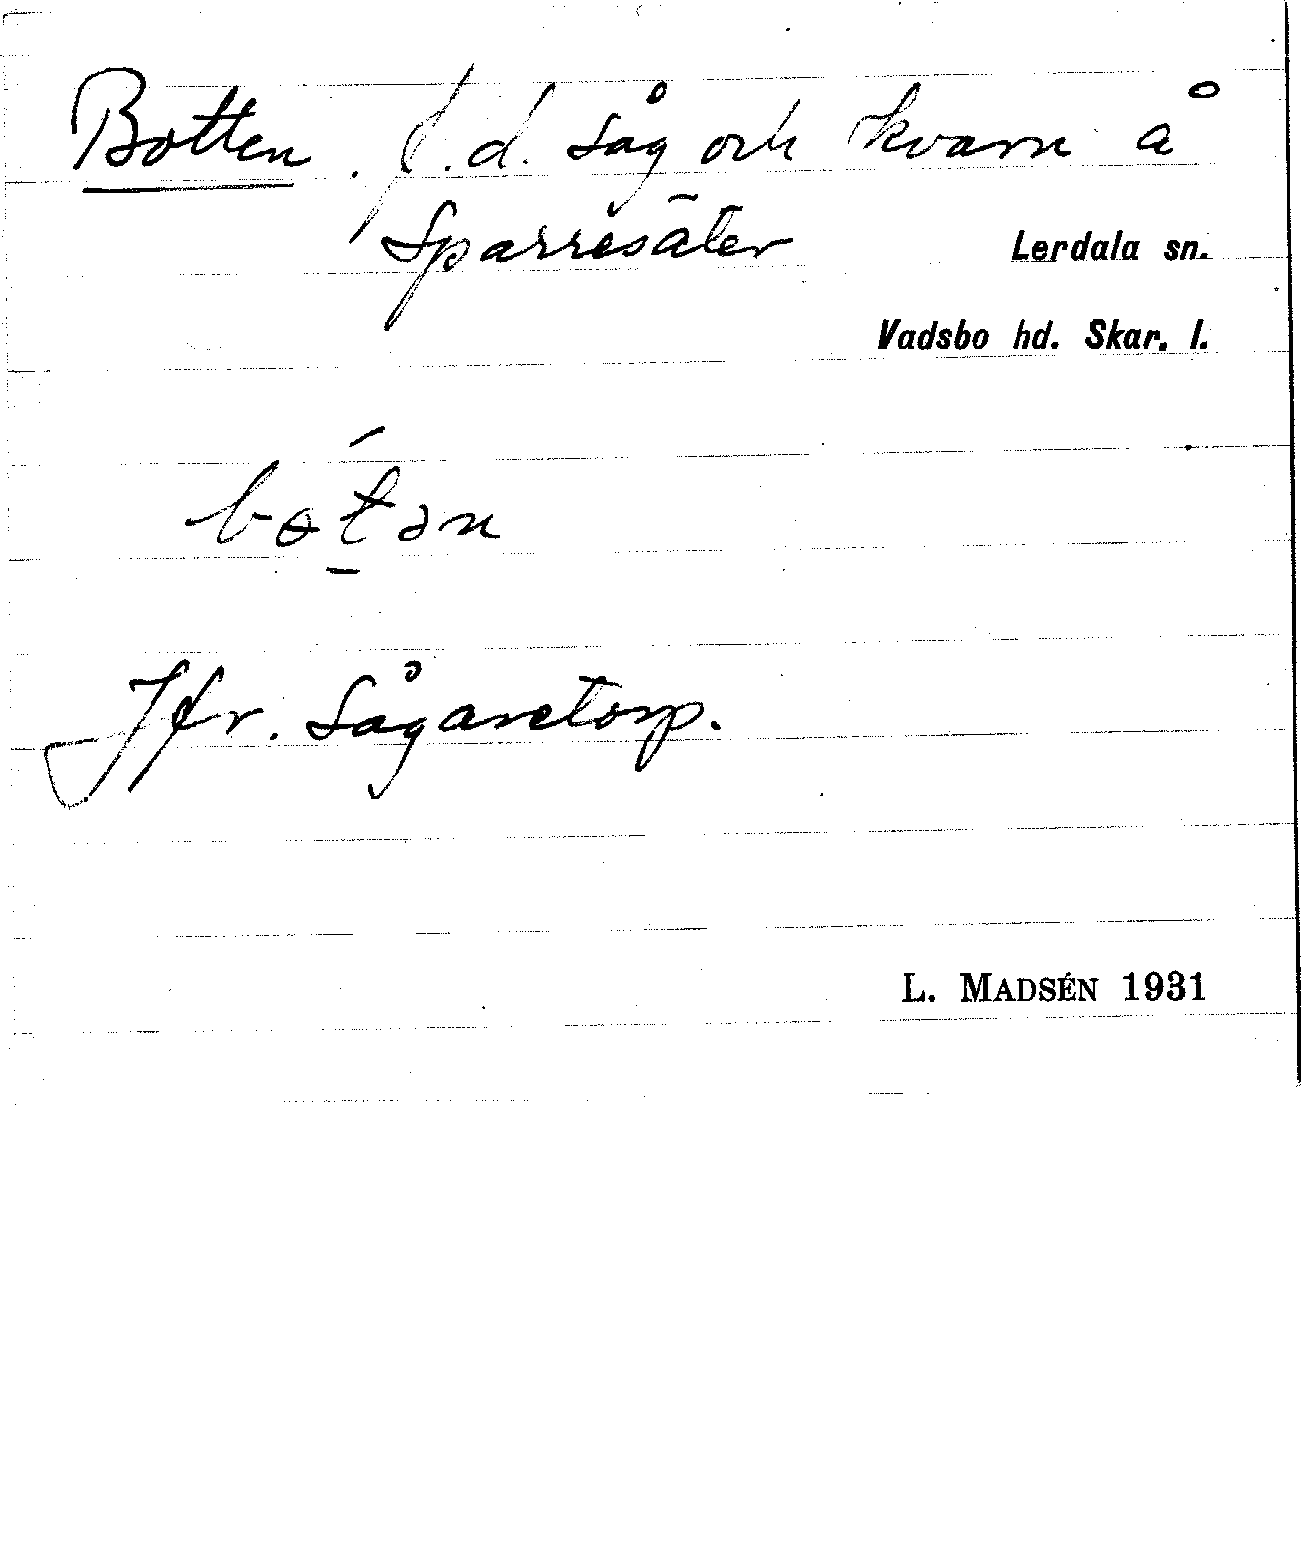 Botten. f.d. såg och kvarn å
Sparresäter
Lerdala sn.
Vadsbo hd. Skar. l.
Jfr. Sågaretorp.
L. MADSÉN 1931